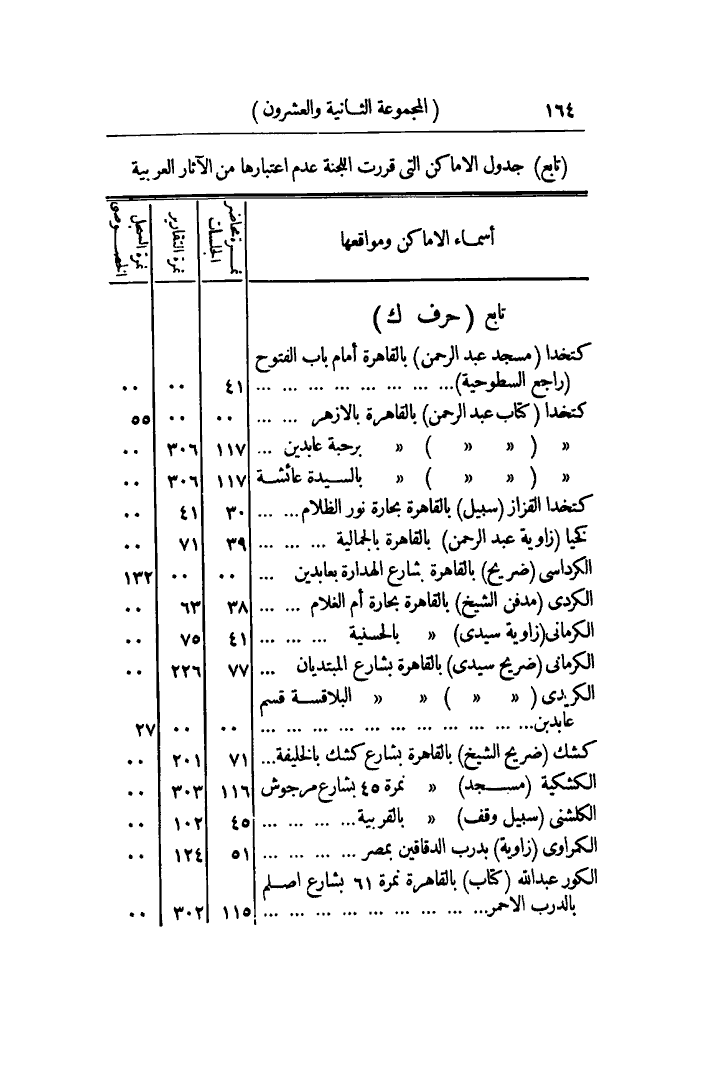 ١٦٤ ( المجموعة الثانية والعشرون )
(تابع) جدول الاماكن التى قررت اللجنة عدم اعتبارها من الآثار العربية
أسماء الاماكن ومواقعها | نمرة محاضر الجلسات | نمرة التقارير | نمرة السجل الخصوصى
تابع (حرف ك)
كتخدا (مسجد عبد الرحمن) بالقاهرة أمام باب الفتوح
(راجع السطوحية)... ... ... ... ... ... ... ... ٤١ ٠٠ ٠٠
كتخدا (كتاب عبد الرحمن) بالقاهرة بالازهر ... ... ٠٠ ٠٠ ٥٥
« ( « « ) « برحبة عابدين ... ١١٧ ٣٠٦ ٠٠
« ( « « ) « بالسيدة عائشة ١١٧ ٣٠٦ ٠٠
كتخدا القزاز (سبيل) بالقاهرة بحارة نور الظلام... ... ٣٠ ٤١ ٠٠
كخيا (زاوية عبد الرحمن) بالقاهرة بالجمالية ... ... ... ٣٩ ٧١ ٠٠
الكرداسى (ضريح) بالقاهرة بشارع الهدارة بعابدين ... ٠٠ ٠٠ ١٣٢
الكردى (مدفن الشيخ) بالقاهرة بحارة أم الغلام ... ... ٣٨ ٦٣ ٠٠
الكرمانى (زاوية سيدى) « بالحسنية ... ... ... ٤١ ٧٥ ٠٠
الكرمانى (ضريح سيدى) بالقاهرة بشارع المبتديان ... ٧٧ ٢٢٦ ٠٠
الكريدى ( « « ) « « البلاقسة قسم
عابدين... ... ... ... ... ... ... ... ... ... ٠٠ ٠٠ ٢٧
كشك (ضريح الشيخ) بالقاهرة بشارع كشك بالخليفة... ٧١ ٢٠١ ٠٠
الكشكية (مسجد) « نمرة ٤٥ بشارع مرجوش ١١٦ ٣٠٣ ٠٠
الكلشنى (سبيل وقف) « بالقربية... ... ... ... ٤٥ ١٠٢ ٠٠
الكمراوى (زاوية) بدرب الدقاقين بمصر ... ... ... ... ٥١ ١٢٤ ٠٠
الكور عبدالله (كتاب) بالقاهرة نمرة ٦١ بشارع اصلم
بالدرب الاحمر... ... ... ... ... ... ... ... ... ١١٥ ٣٠٢ ٠٠